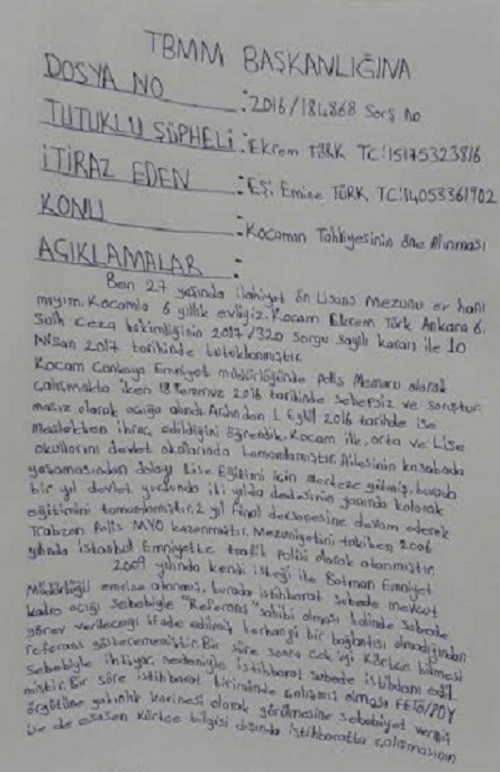 TBMM BAŞKANLIĞINA
DOSYA NO : 2016/184868 Sorş no
TUTUKLU ŞÜPHELİ : Ekrem TÜRK TC:15175323816
İTİRAZ EDEN : Eşi Emine TÜRK TC:14053361702
KONU : Kocamın Tahliyesinin öne Alınması
AÇIKLAMALAR :
Ben 27 yaşında ilahiyat ön Lisans Mezunu ev hanı
mıyım. Kocamla 6 yıllık evliyiz. Kocam Ekrem Türk Ankara 6.
Sulh Ceza hakimliğinin 2017/320 Sorgu sayılı kararı ile 10
Nisan 2017 tarihinde tutuklanmıştır.
Kocam Çankaya Emniyet müdürlüğünde Polis Memuru olarak
çalışmakta iken 18 Temmuz 2016 tarihinde sebepsiz ve soruştur
masız olarak açığa alındı. Ardından 1 Eylül 2016 tarihde ise
meslekten ihraç edildiğini öğrendik. Kocam ilk, orta ve Lise
okullarını devlet okullarında tamamlamıştır. Ailesinin kasabada
yaşamasından dolayı Lise Eğitimi için merkeze gelmiş, burada
bir yıl devlet yurdunda iki yılda dedesinin yanında kalarak
eğitimini tamamlamıştır. 2 yıl Final dersanesine devam ederek
Trabzon Polis MYO kazanmıştır. Mezuniyetini takiben 2006
yılında istanbul Emniyetine trafik polisi olarak atanmıştır.
2009 yılında kendi isteği ile Batman Emniyet
Müdürlüğü emrine atanmış, burada istihbarat şubede mevcut
kadro açığı sebebiyle "Referans" sahibi olması halinde şubede
görev verileceği ifade edilmiş, herhangi bir bağlantısı olmadığından
referans gösterememiştir. Bir süre sonra çok iyi kürtçe bilmesi
sebebiyle ihtiyaç nedeniyle istihbarat şubede istihdam edil
miştir. Bir süre istihbarat biriminde çalışmış olması FETÖ/PDY
örgütüne yakınlık karinesi olarak görülmesine sebebiyet vermiş
se de esasen kürtçe bilgisi dışında istihbaratta çalışmasının